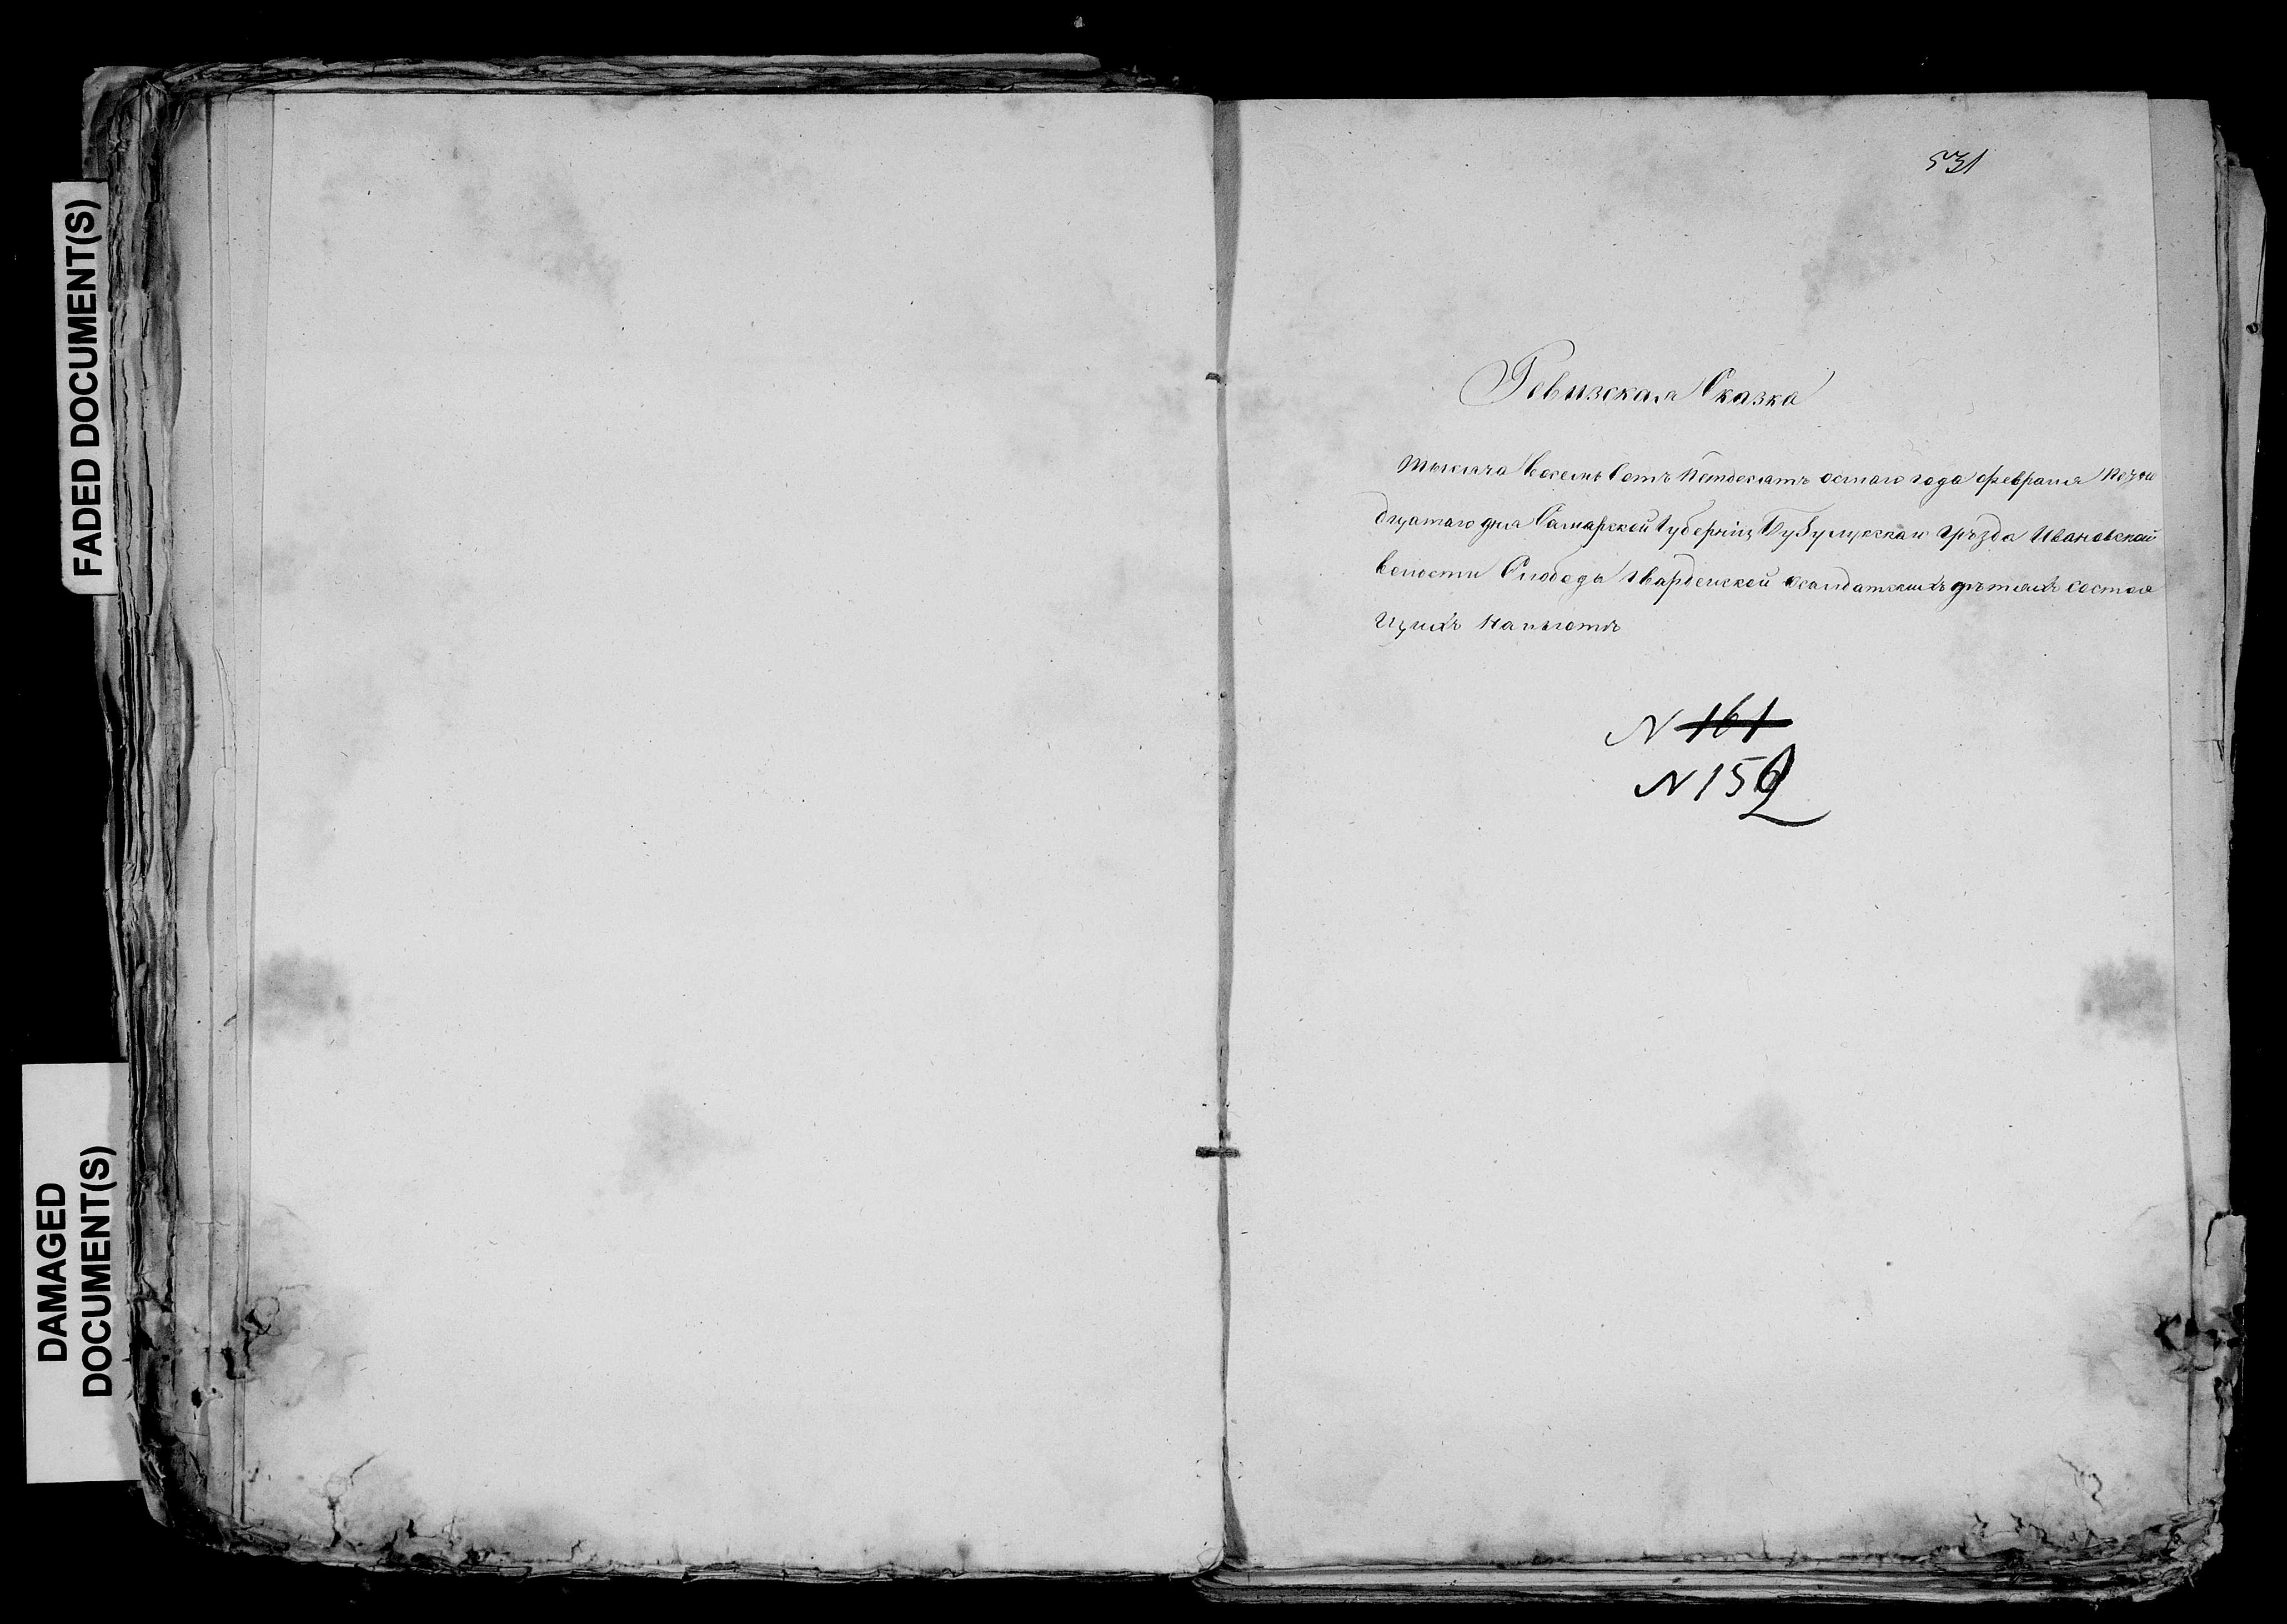 FADED DOCUMENT(S)
DAMAGED
DOCUMENT(S)
531
Ревизская Сказка
Тысяча Восемь Сотъ Пятдесятъ осмаго года февраля
дцатаго дня Самарской Губерніи Бузулукскаго Уѣзда Ивановской
волости Слободы Гвардейской осолдатскихъ дѣтяхъ состоя
щихъ на льготѣ
N 161
N 152